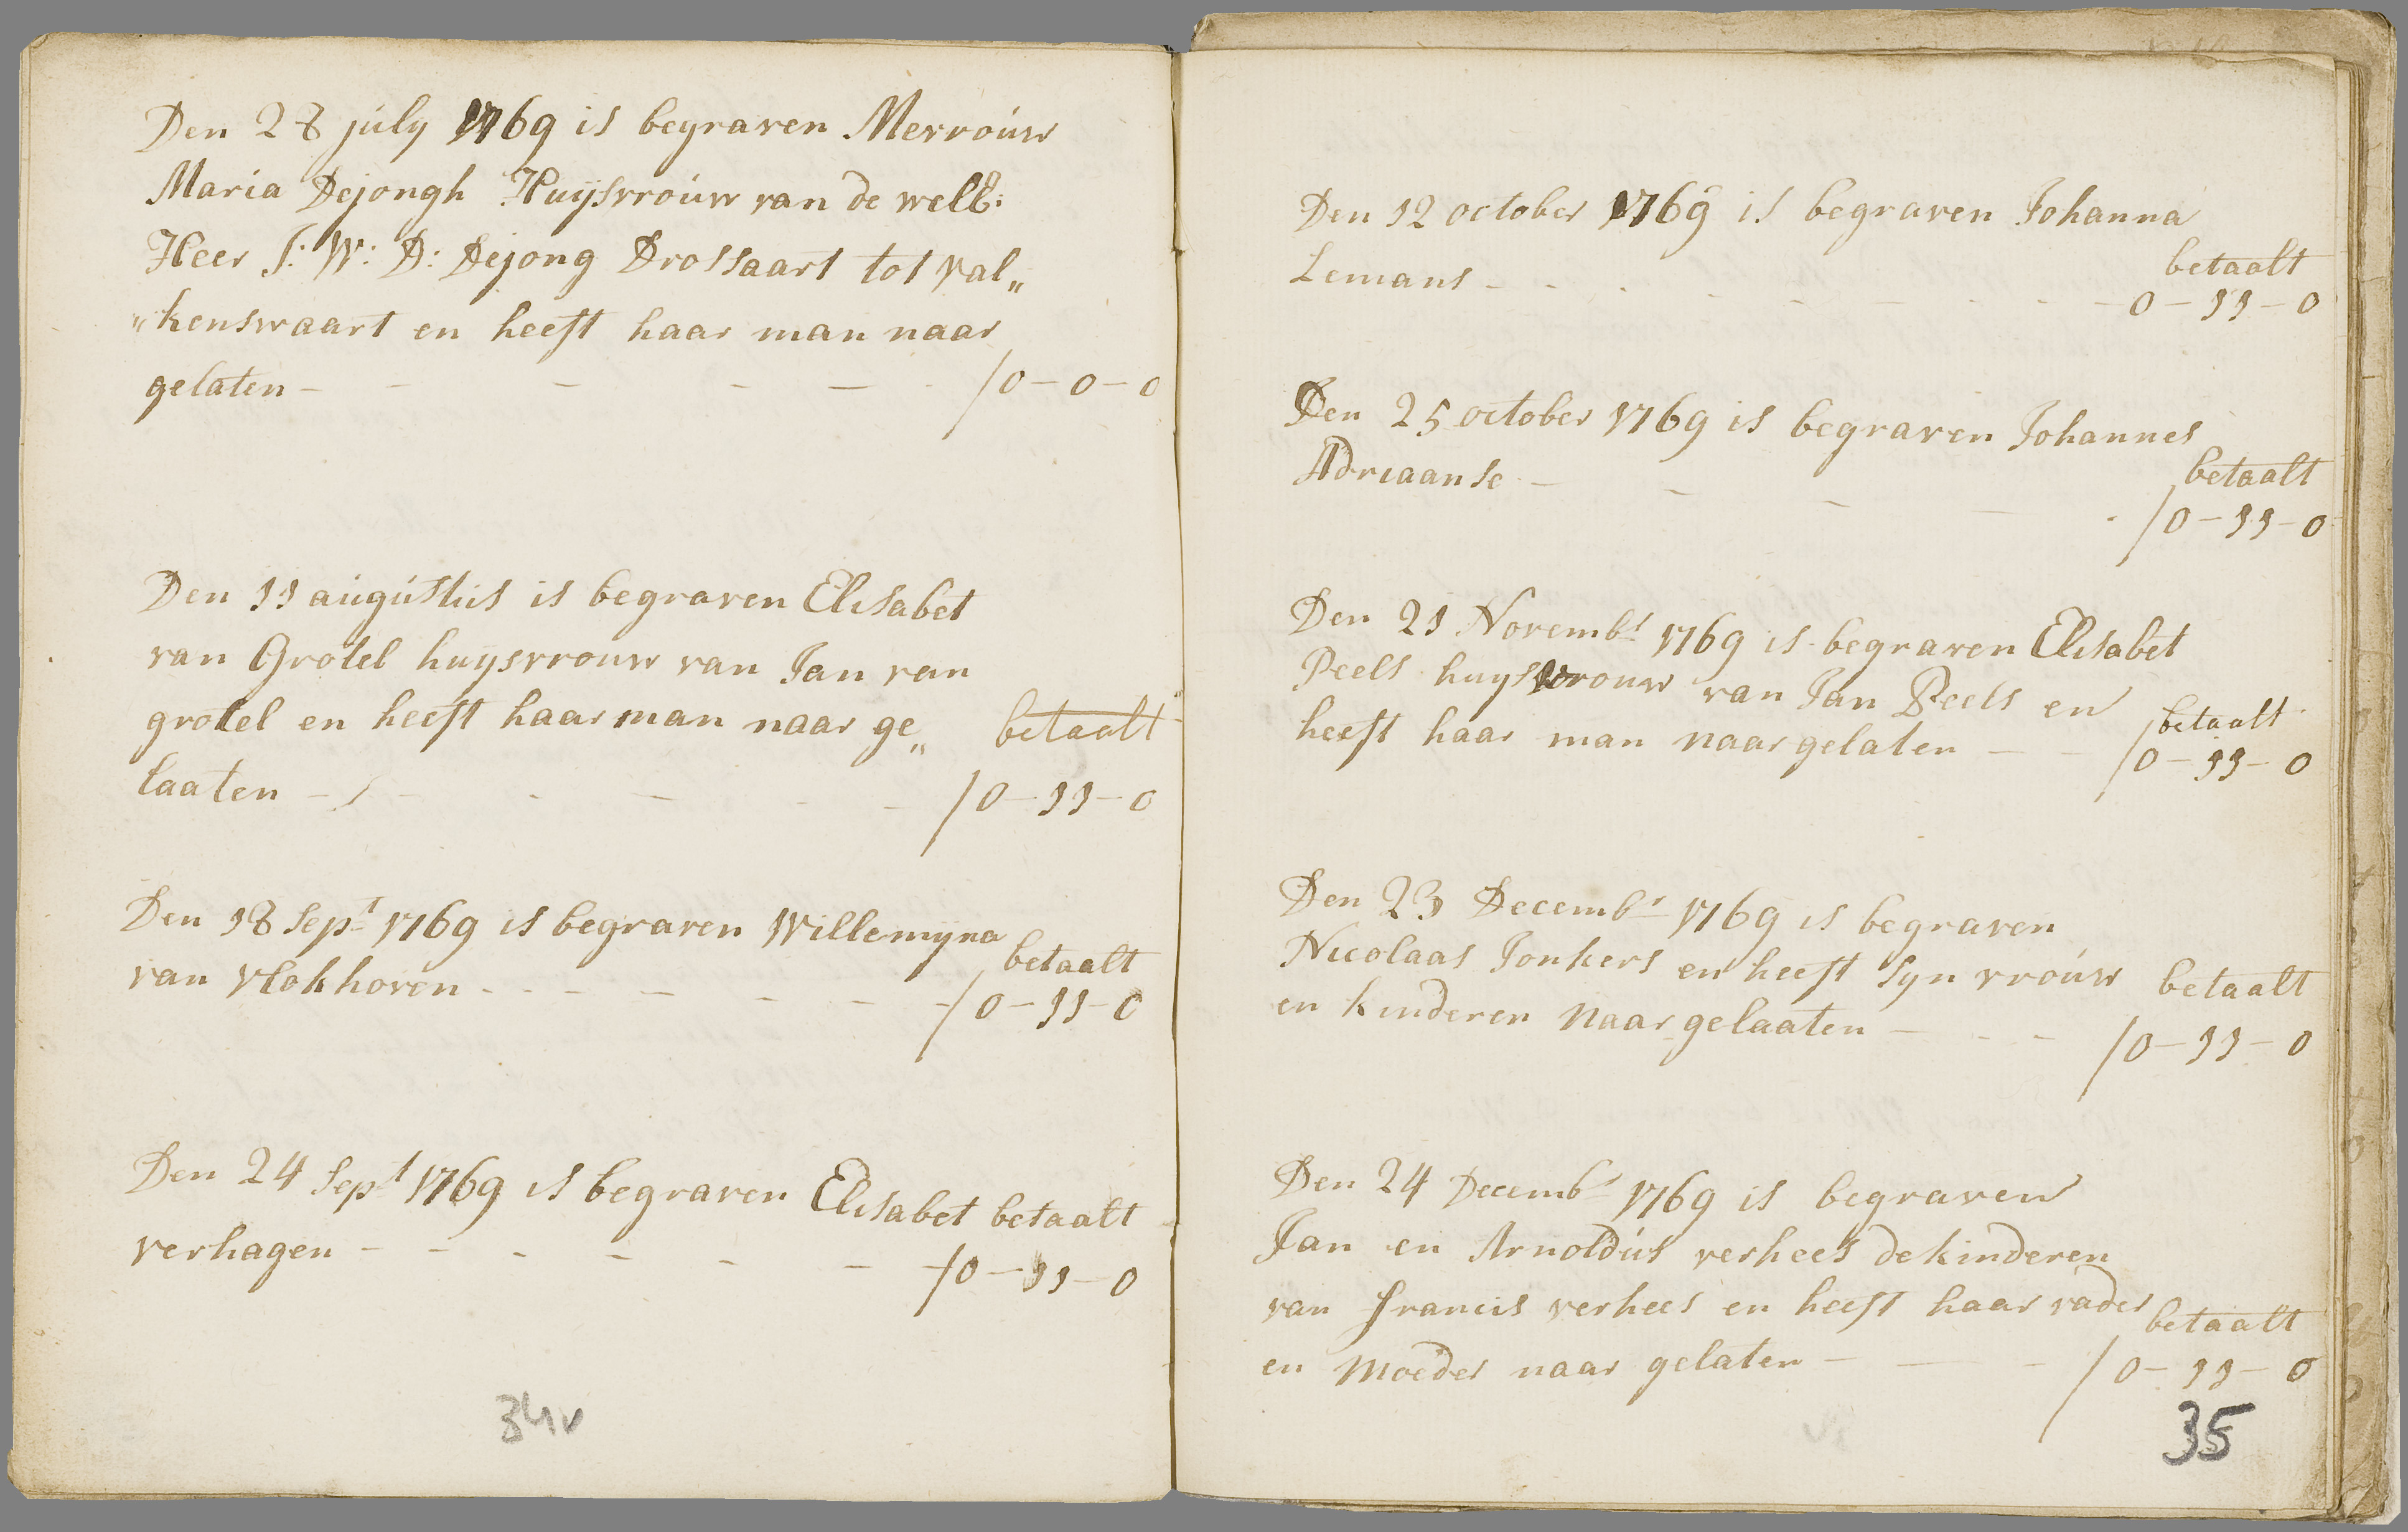 Den 28 july 1769 is begraven Mevrouw
Maria Dejongh Huijsvrouw van de welb:
Heer J: W: D: Dejong Drossaart tot val„
„kenswaart en heeft haar man naar
gelaten - - - - - /0-0-0
Den 11 augustus is begraven Elisabet
van Grotel huysvrouw van Jan van
grotel en heeft haar man naar ge„ betaalt
laaten - - - - - /0-11-0
Den 18 Sept 1769 is begraven Willemijna
betaalt
van vlokhoven - - - - - /0-11-0
Den 24 Sept 1769 is begraven Elisabet betaalt
verhagen - - - - - - /0-11-0
34v
Den 12 october 1769 is begraven Johanna
betaalt
Lemans - - - - - - 0-11-0
Den 25 october 1769 is begraven Johannes
Adriaanse - - - - betaalt
/0-11-0
Den 21 Novembr 1769 is begraven Elisabet
Peels huysvrouw van Jan Peels en betaalt
heeft haar man naar gelaten - - /0-11-0
Den 23 Decembr 1769 is begraven
Nicolaas Jonkers en heeft syn vrouw betaalt
en kinderen naar gelaaten - - - /0-11-0
Den 24 Decembr 1769 is begraven
Jan en Arnoldus verhees de kinderen
van francis verhees en heeft haar vader betaalt
en Moeder naar gelaten - - - /0-11-0
35